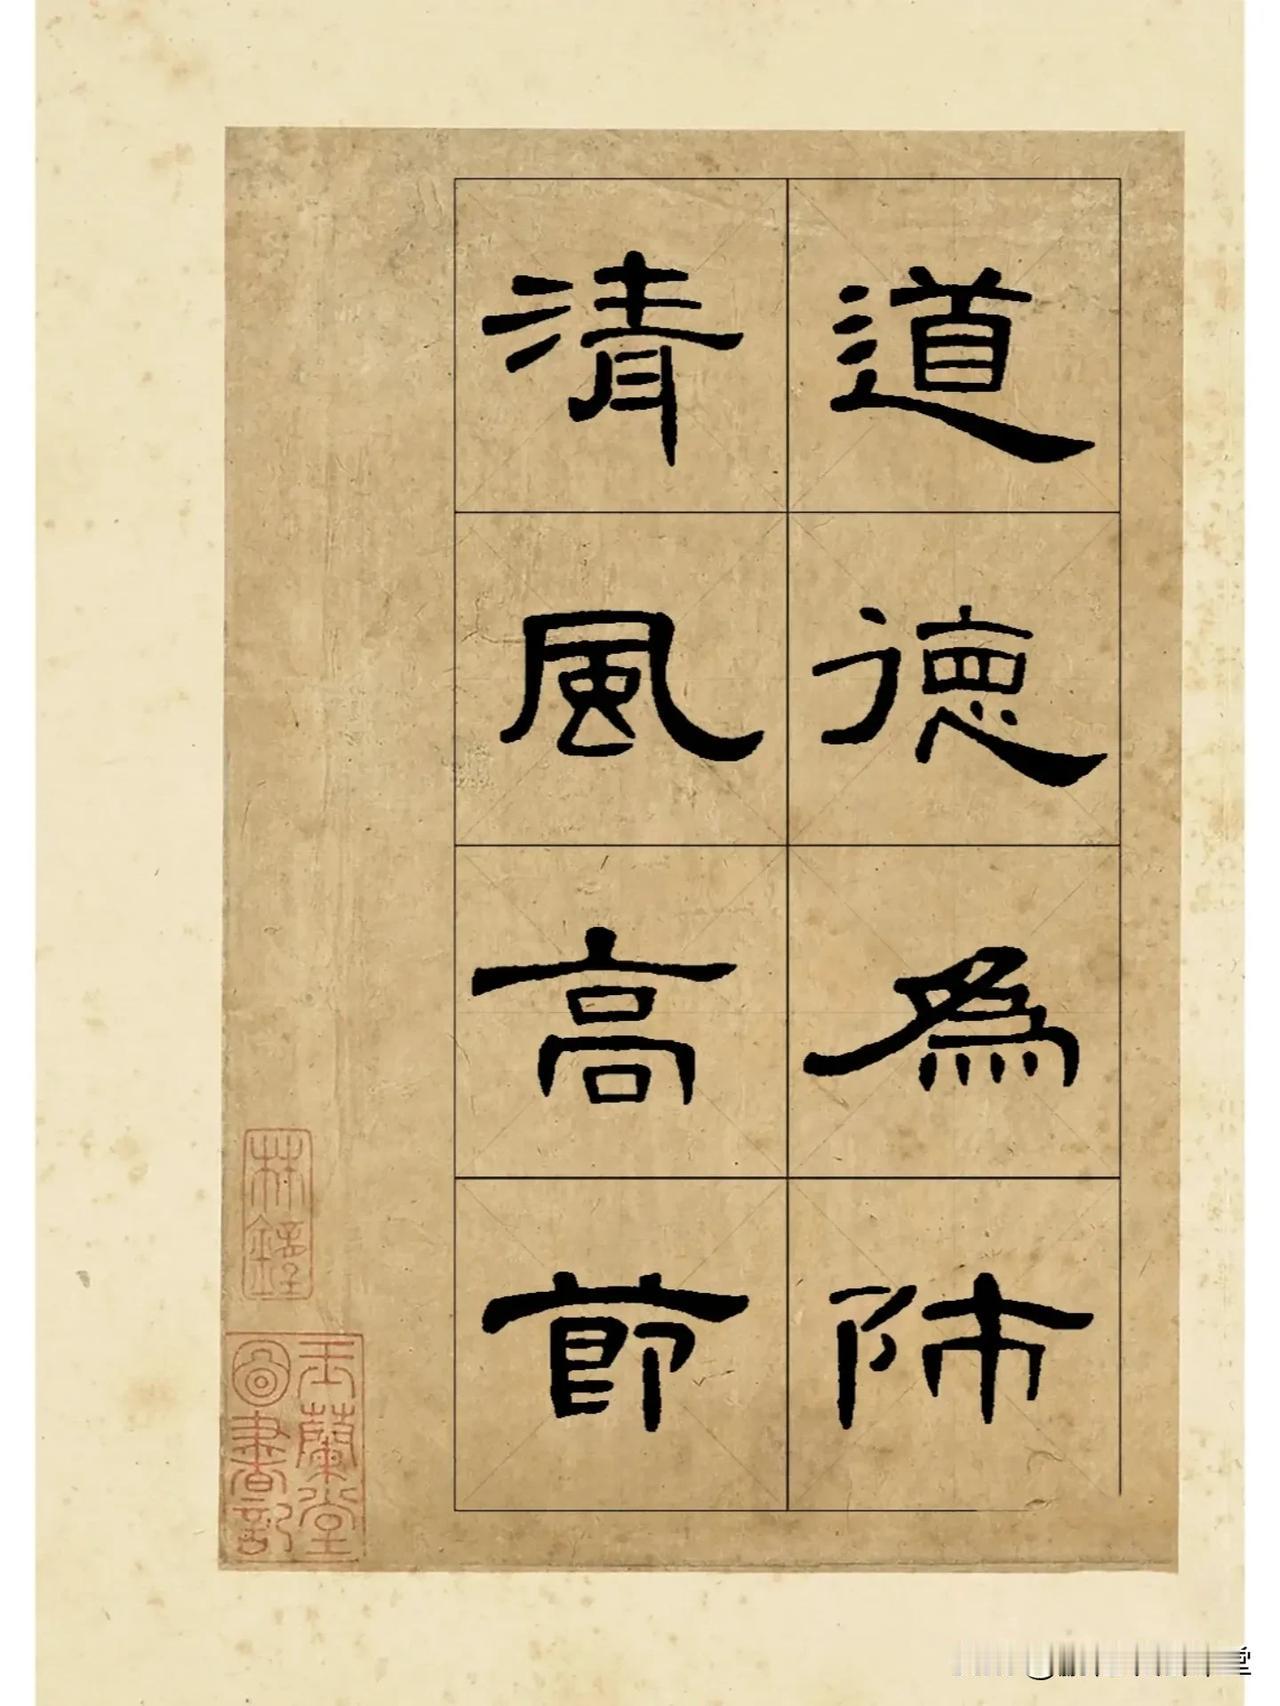 道德為師
清風高節
玉蘭堂
圖書記